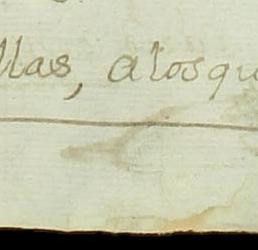 llas, alosqu